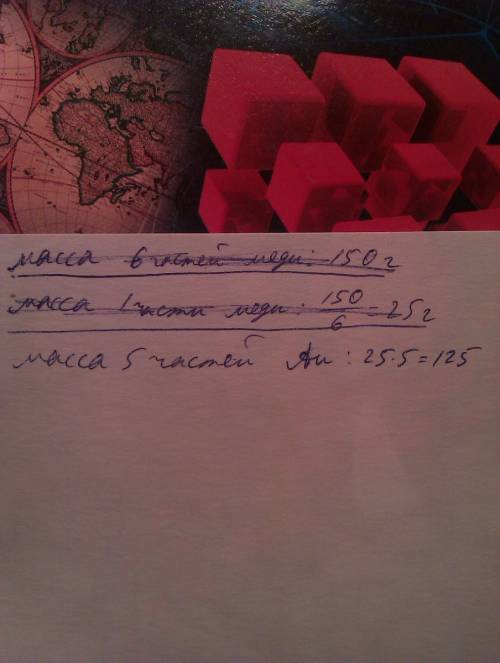 масса 6 частей меди: 150 г
масса 1 части меди: 150/6 = 25 г
масса 5 частей Au: 25·5=125